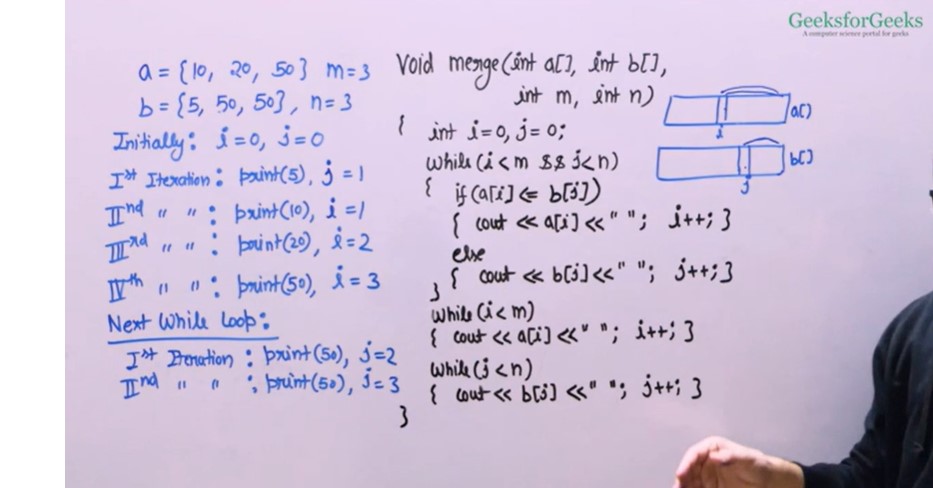 GeeksforGeeks
A computer science portal for geeks
a = {10, 20, 50} m=3
b = {5, 50, 50}, n=3
Initially: i=0, j=0
Ist Iteration: print(5), j=1
IInd " " : print(10), i=1
IIIrd " " : print(20), i=2
IVth " " : print(50), i=3
Next While Loop:
Ist Iteration : print(50), j=2
IInd " " : print(50), j=3
Void merge(int a[], int b[],
int m, int n)
{ int i=0, j=0;
while (i<m && j<n)
{ if(a[i] <= b[j])
{ cout << a[i] <<" "; i++; }
else
{ cout << b[j] <<" "; j++; }
}
while (i<m)
{ cout << a[i] <<" "; i++; }
while (j<n)
{ cout << b[j] <<" "; j++; }
}
a[]
i
b[]
j